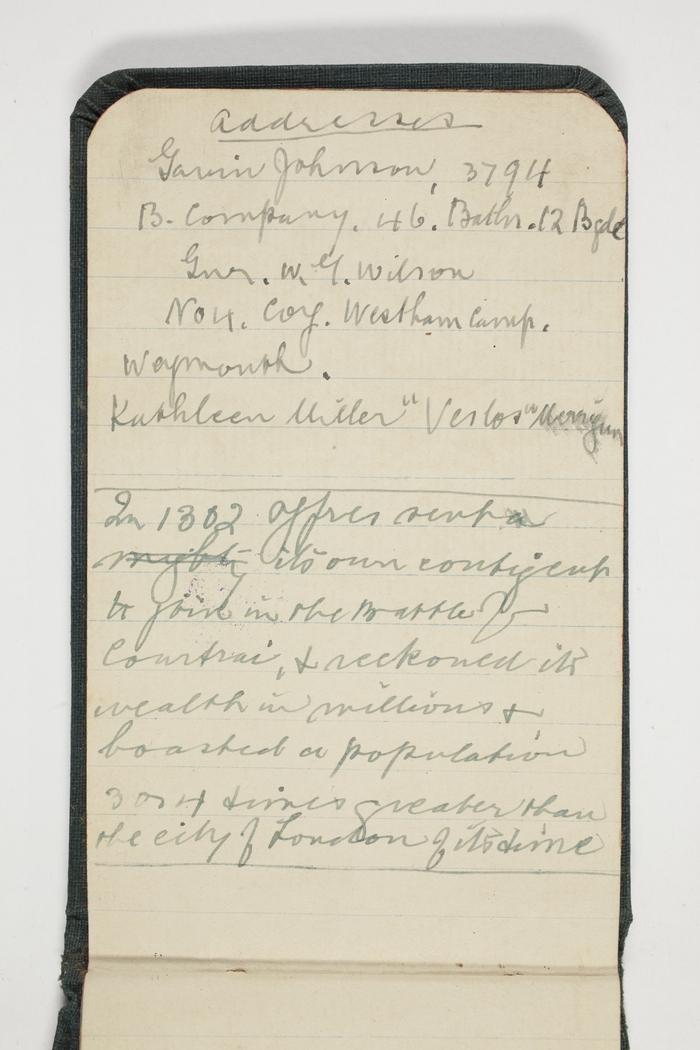 Addresses
Gavin Johnson, 3794
B. Company. 46. Batln. 12 Bgde
Gnr. W. G. Wilson
No 4. Coy. Westham Camp.
Weymouth.
Kathleen Miller "Veslos"
In 1302 Ypres sent a
mighty its own contigent
to join in the Battle of
Courtrai, & reckoned its
wealth in millions &
boasted a population
3 or 4 times greater than
the city of London of its time